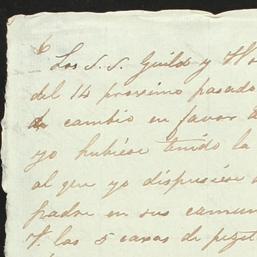 6
Los S. S. Guild y
del 14 proximo pasado
cambio en favor
yo hubiese tenido la
al que yo dispusiese
padre en sus
las 5 caxas de